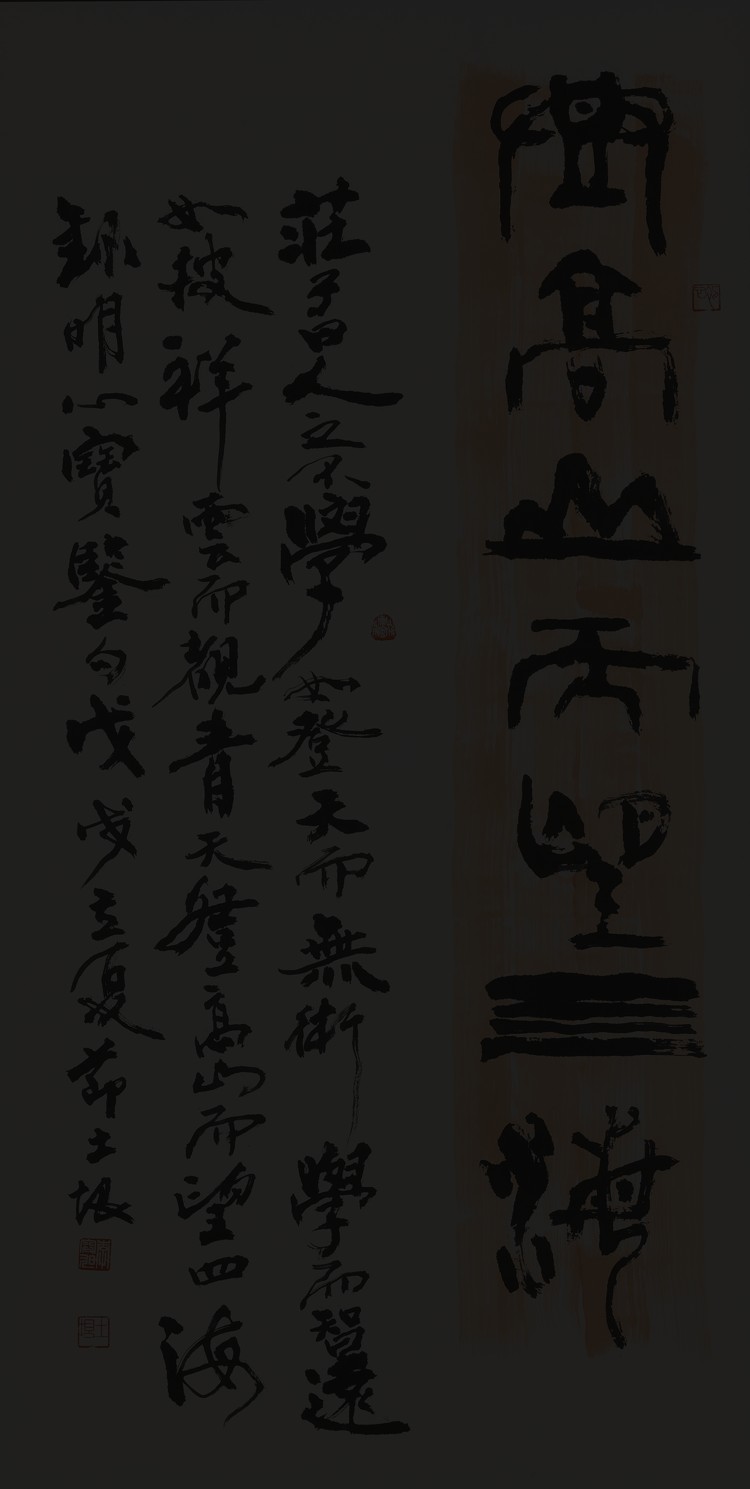 登高山而望三海
莊子曰人之不學如登天而無術學而智遠
如披祥雲而觀青天登高山而望四海
錄明心寶鑒句戊戌立夏節土垠